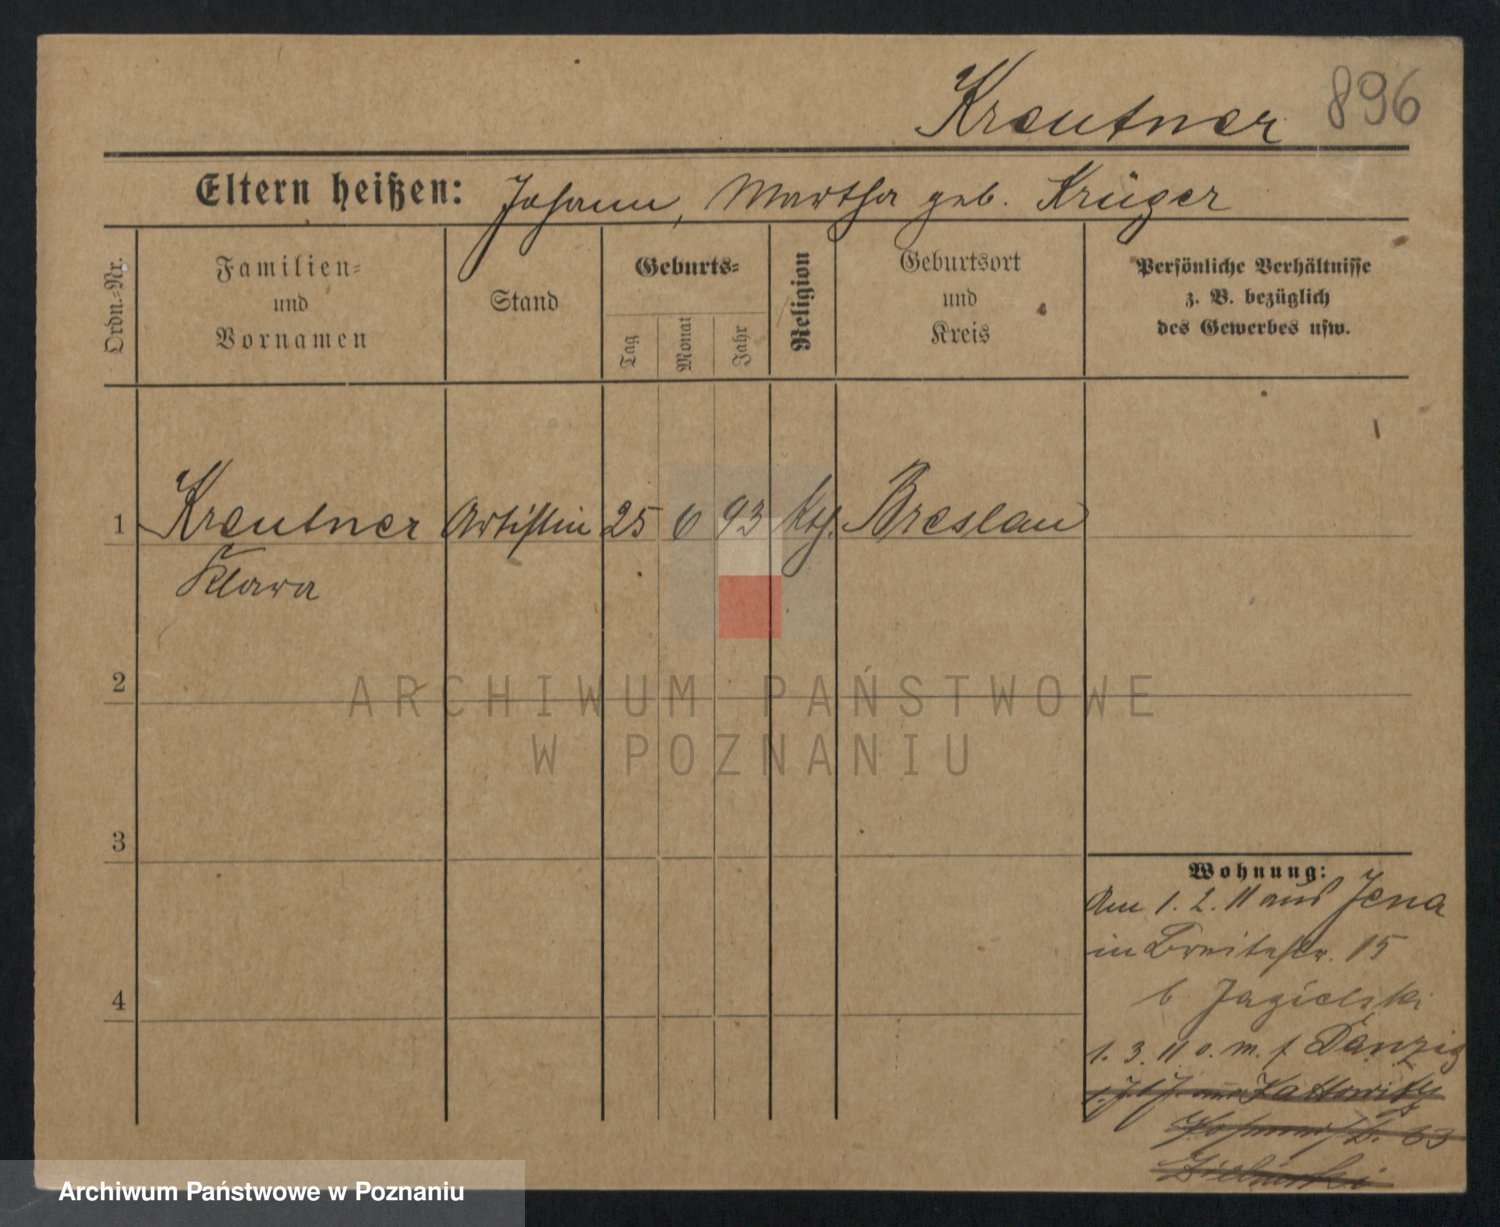 Kreutner 896
Eltern heißen: Johann, Martha geb. Krüger
Ordn.=Nr.
Familien=
und
Vornamen
Stand
Geburts=
Tag
Monat
Jahr
Religion
Geburtsort
und
Kreis
Persönliche Verhältnisse
z. B. bezüglich
des Gewerbes usw.
1 Kreutner Artistin 25 6 93 kth. Breslau
Klara
2
ARCHIWUM PAŃSTWOWE
W POZNANIU
3
Wohnung:
Am 1. 2. 11 aus Jena
in Breitestr. 15
4
b. Jagielski
1. 3. 11 v. m. f. Danzig
Kattowitz
Archiwum Państwowe w Poznaniu